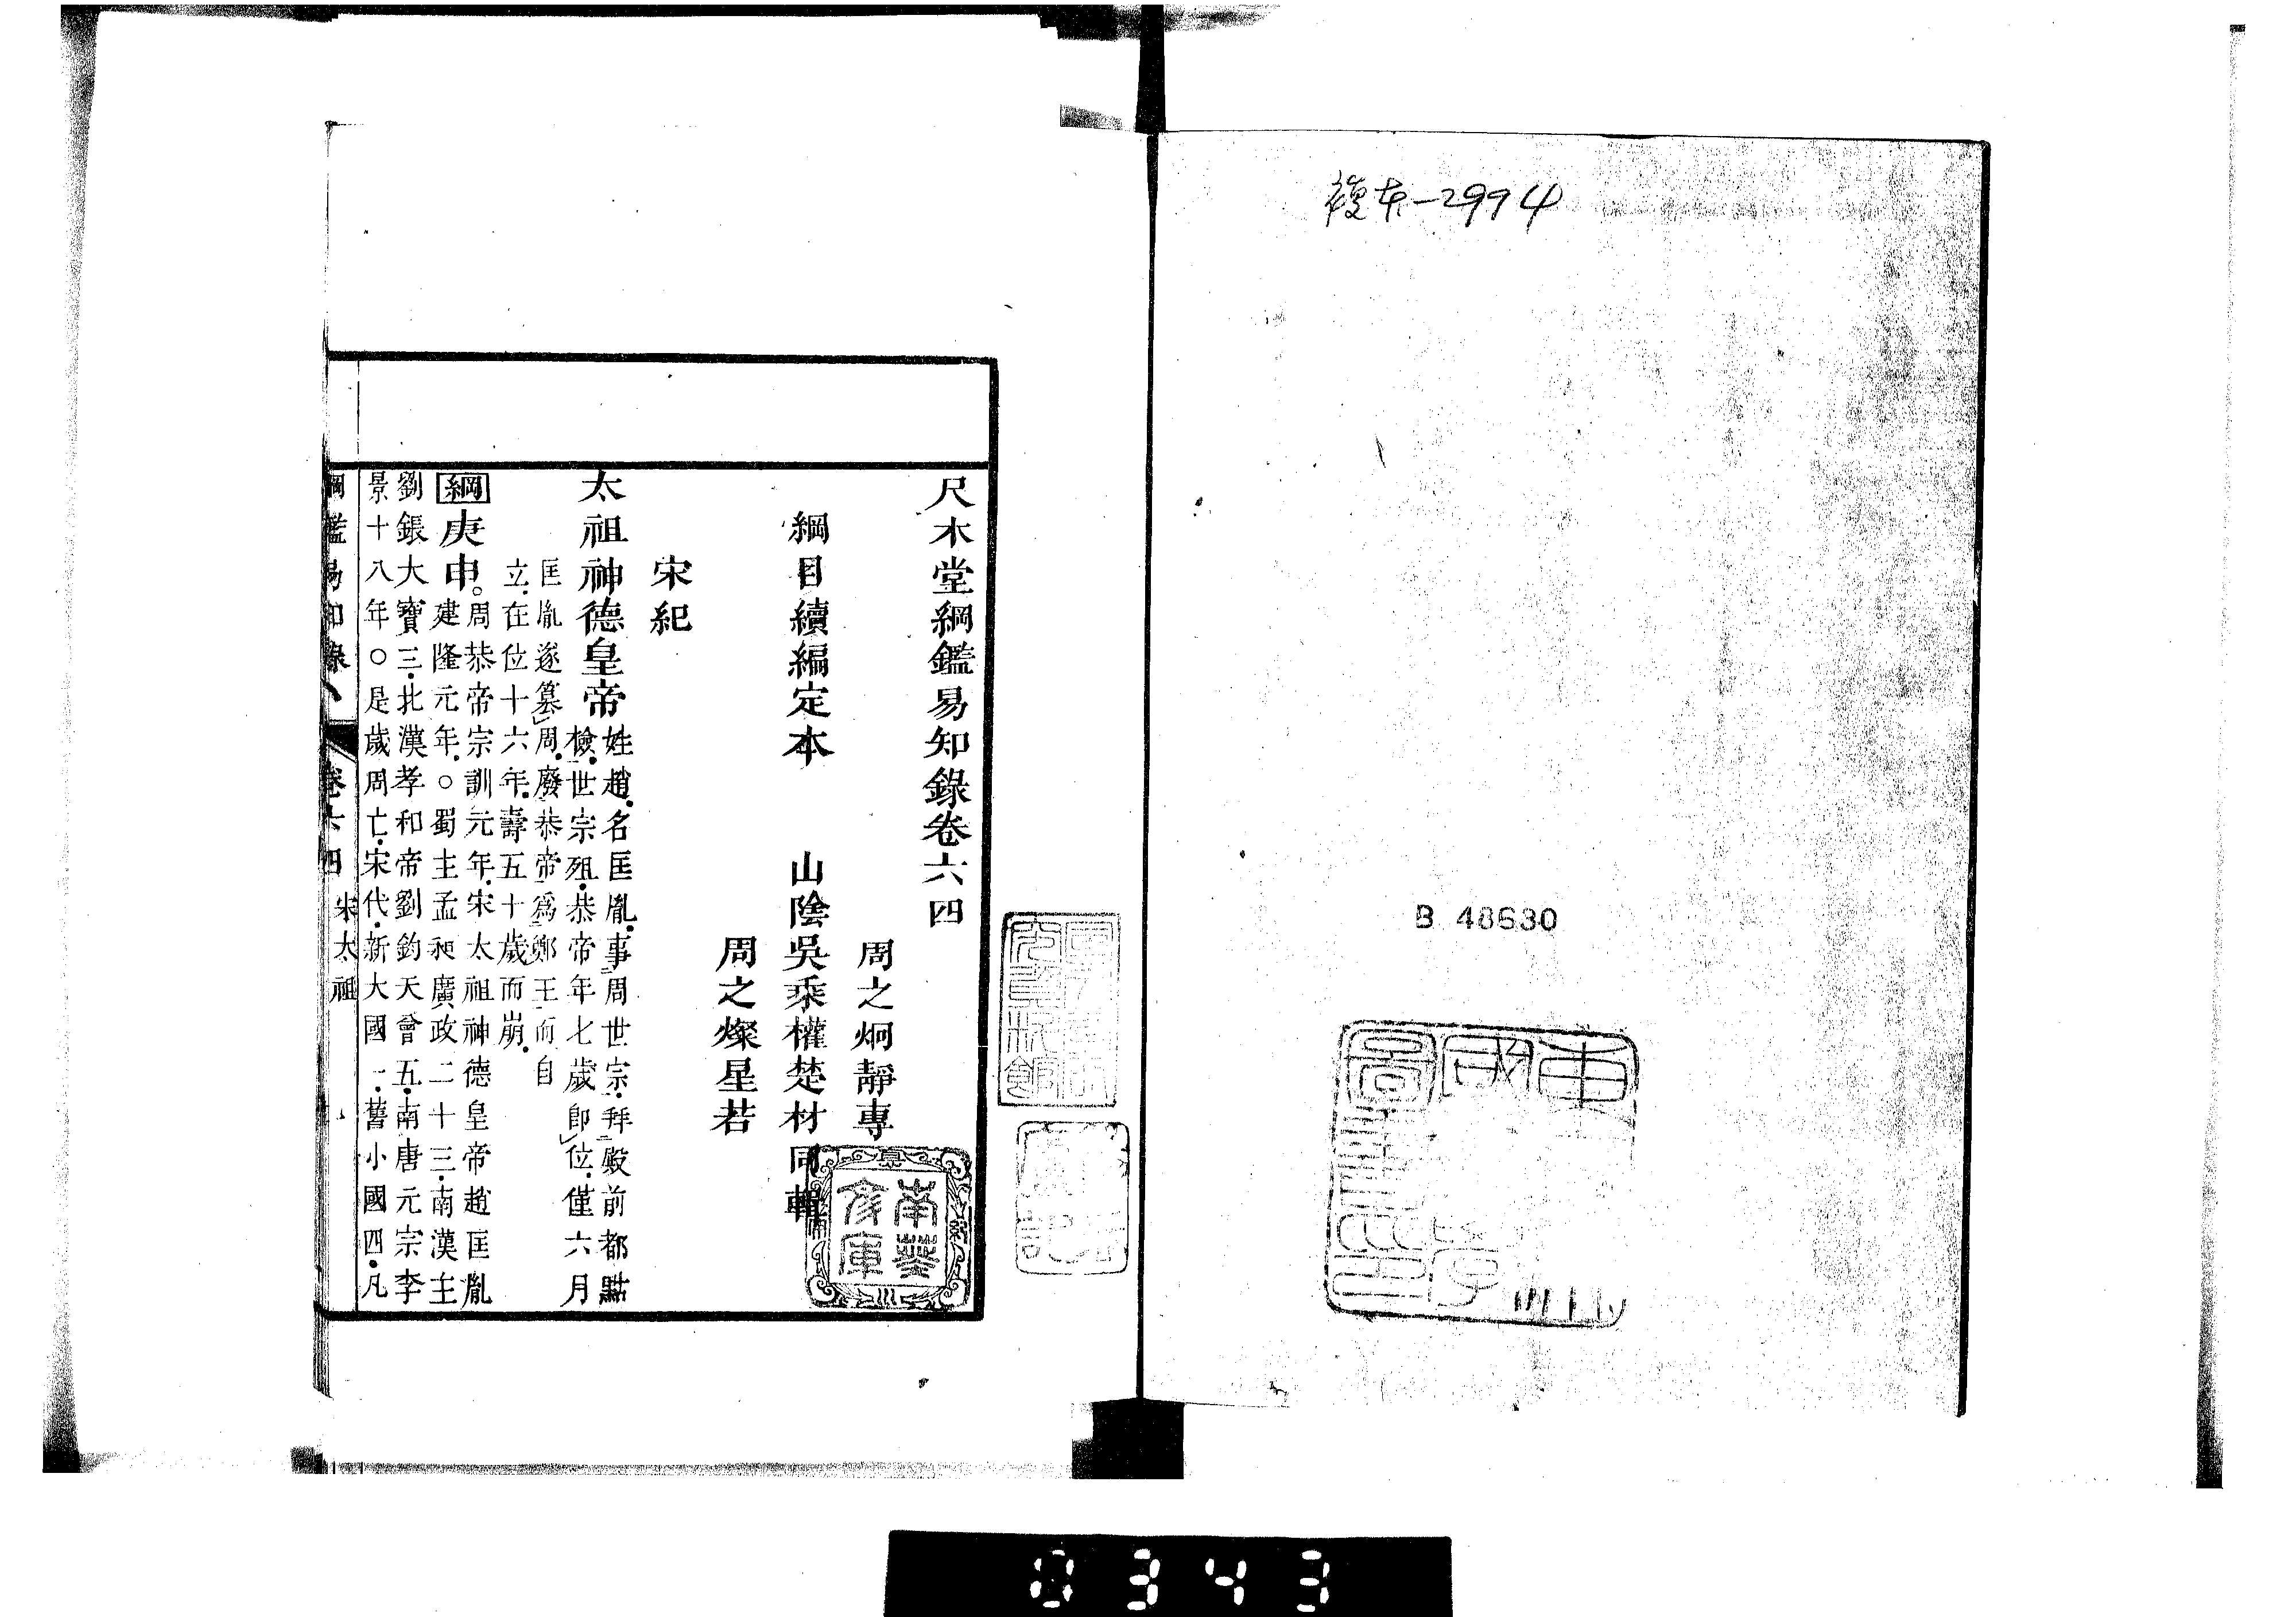 複本-2994
B 48630
尺木堂綱鑑易知錄卷六四
周之炯靜專
綱目續編定本 山陰吳乘權楚材同輯
周之燦星若
宋紀
太祖神德皇帝
姓趙名匡胤事周世宗拜殿前都點
檢世宗殂恭帝年七歲卽位僅六月
匡胤遂簒周廢恭帝爲鄭王而自
立在位十六年壽五十歲而崩
綱庚申。
周恭帝宗訓元年宋太祖神德皇帝趙匡胤
建隆元年○蜀主孟昶廣政二十三南漢主
劉鋹大寶三北漢孝和帝劉鈞天會五南唐元宗李
景十八年○是歲周亡宋代新大國一舊小國四凡
綱鑑易知錄 卷六四 宋太祖
南葵文庫
0343